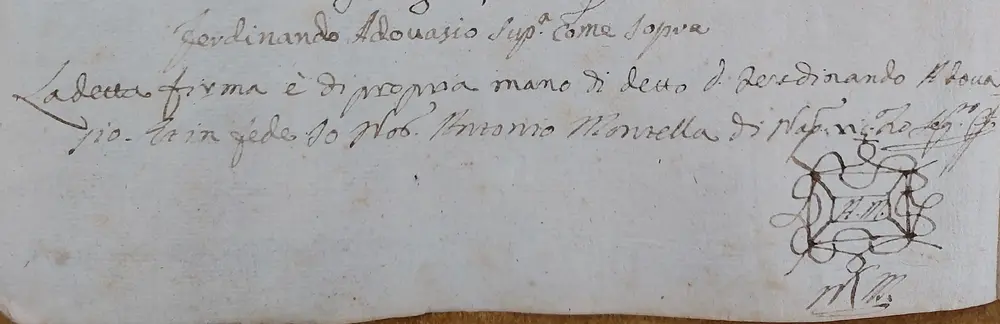 Ferdinando Adouasio sup.ª Come sopra
La detta firma è di propria mano di detto D. Ferdinando Adoua
sio. Et in fede Io Not. Antonio Montella di Nap.
A. M.